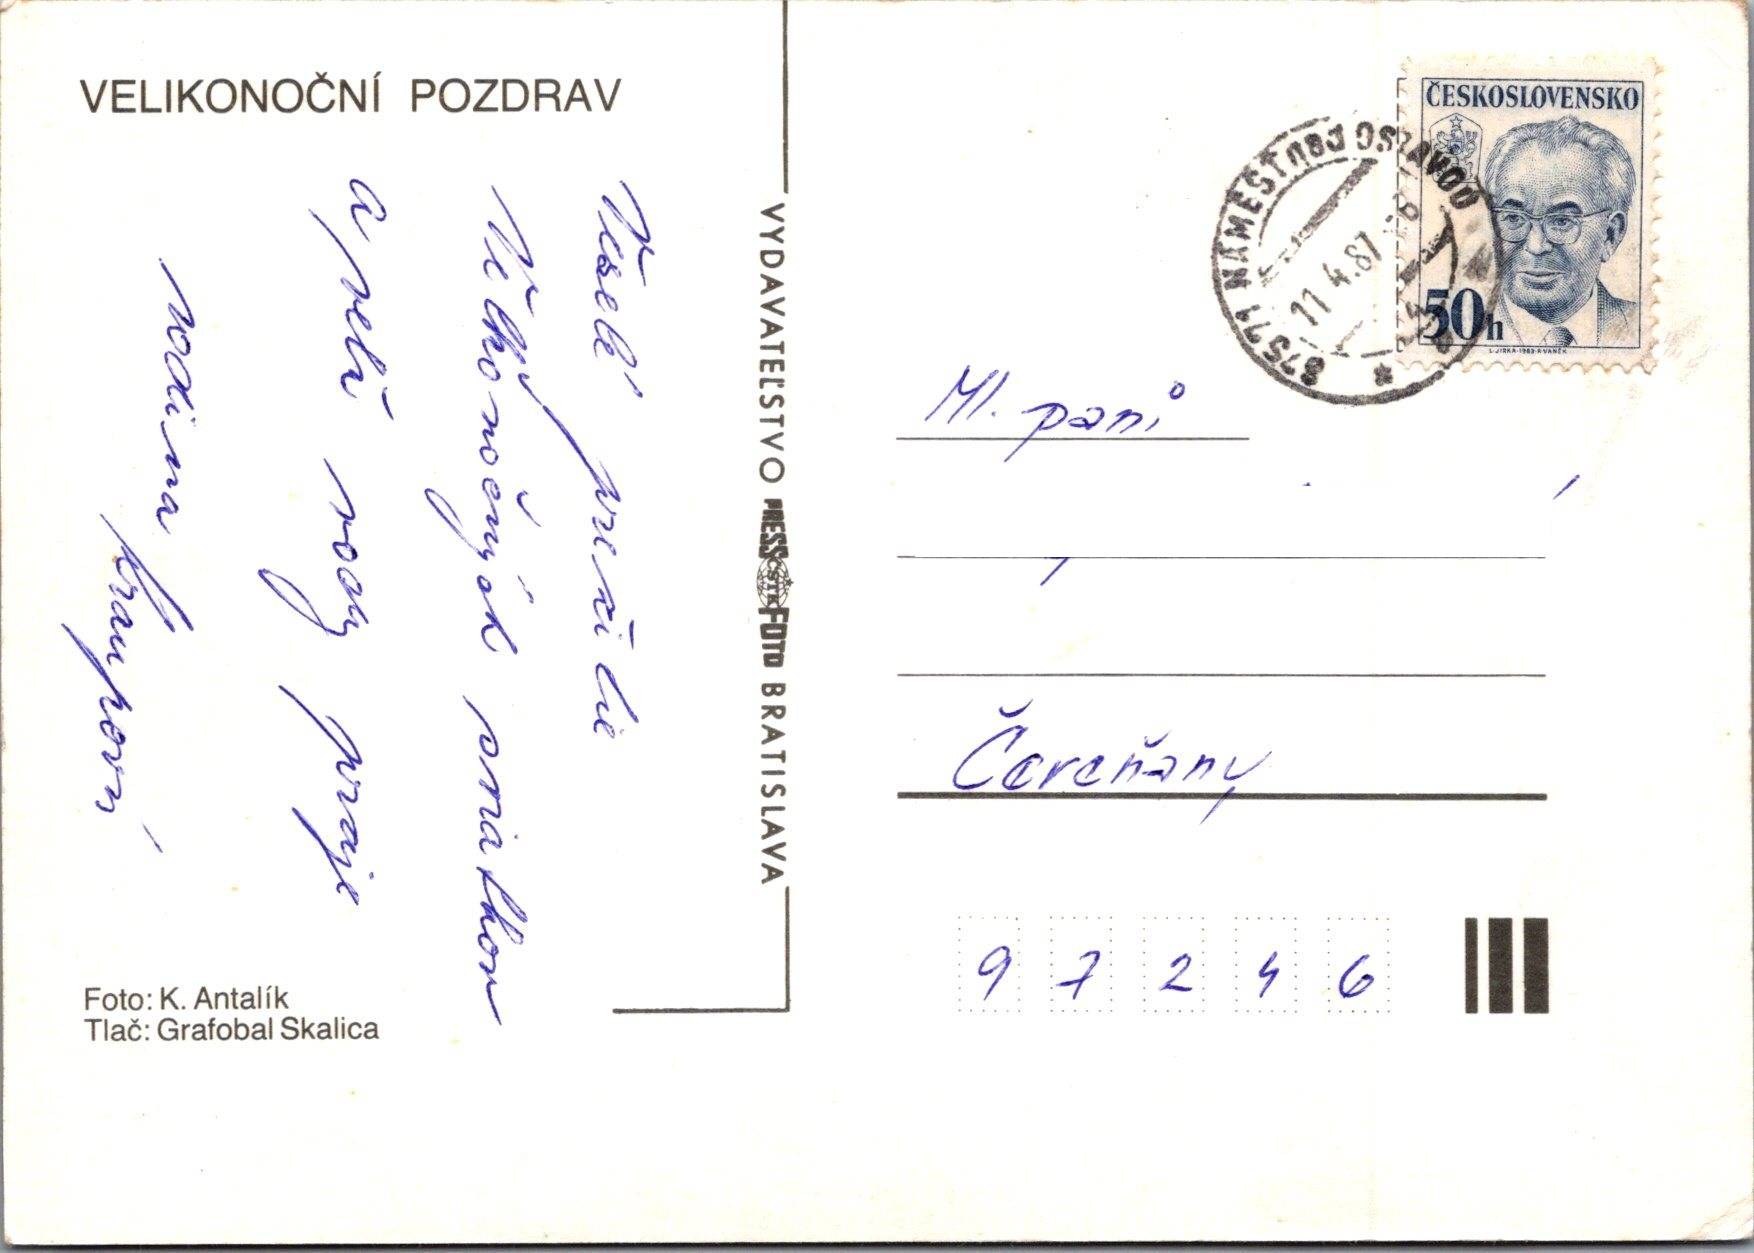 VELIKONOČNÍ POZDRAV
Veselé prežitie
Veľkonočných sviatkov
a veľa vody praje
rodina
Foto: K. Antalík
Tlač: Grafobal Skalica
VYDAVATEĽSTVO PRESSFOTO BRATISLAVA
ČSTK
ČESKOSLOVENSKO
50h
L.JIRKA-1983-R.VANĚK
67571 NÁMĚŠŤ NAD OSLAVOU
11.4.87
Ml. pani
Čereňany
97246